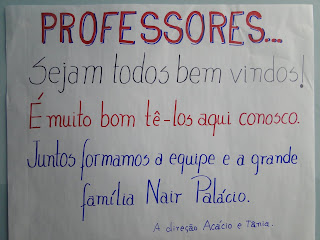 PROFESSORES...
Sejam todos bem vindos!
É muito bom tê-los aqui conosco.
Juntos formamos a equipe e a grande
família Nair Palácio.
A direção Acácio e Tânia.